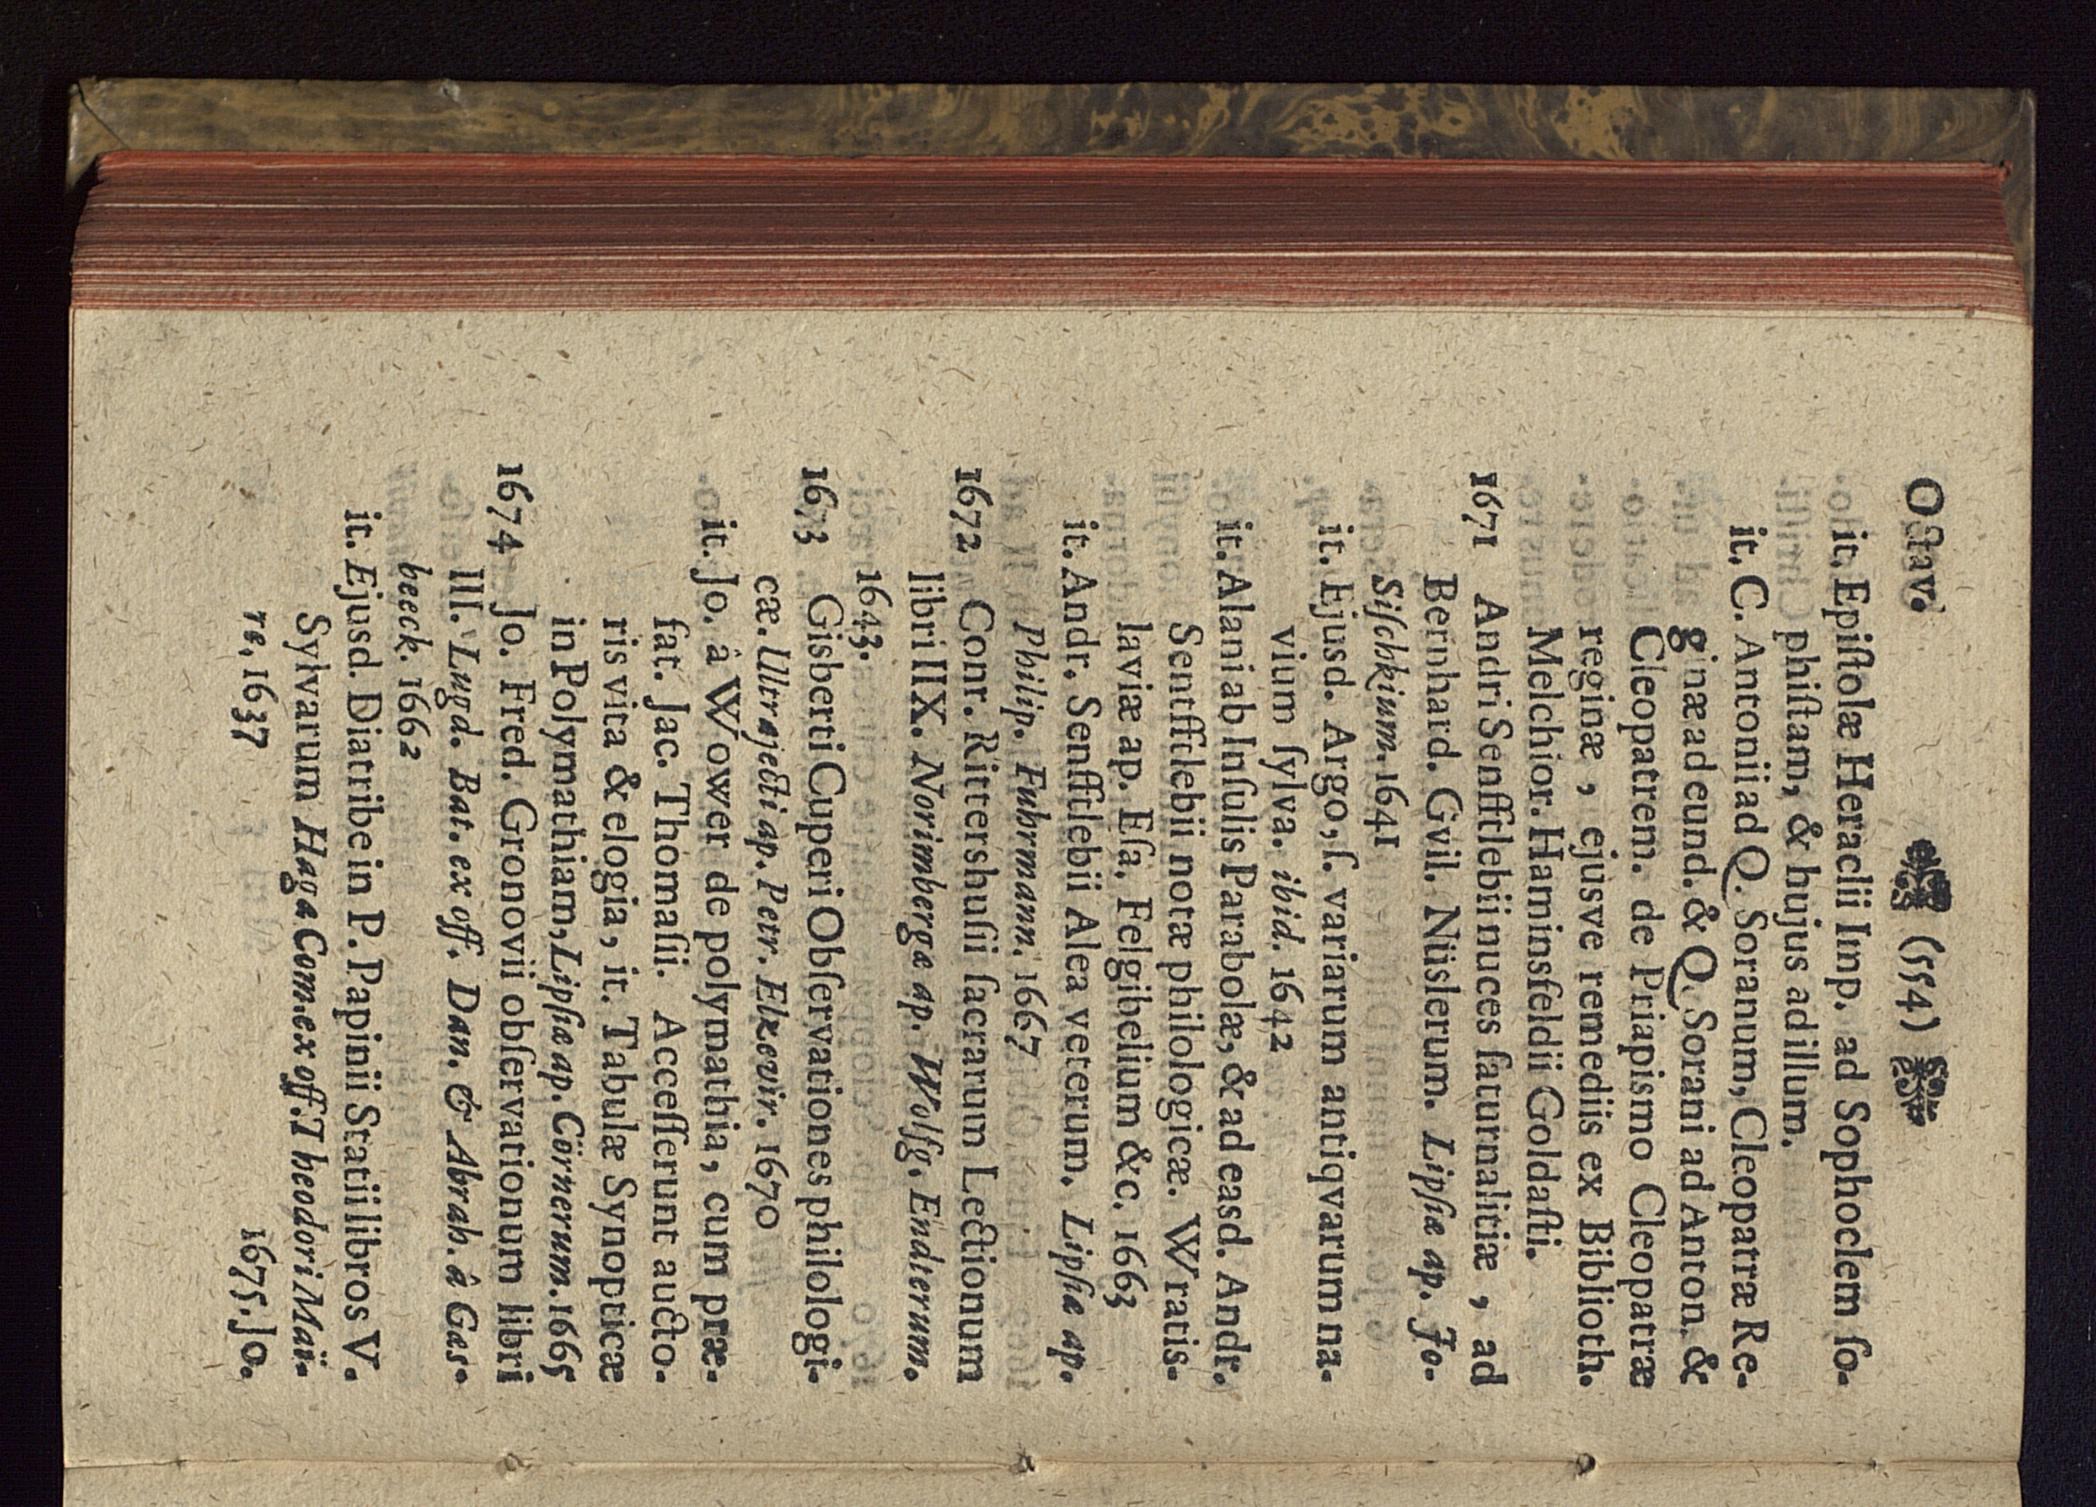 Octav. (554)
it. Epiſtolæ Heraclii Imp. ad Sophoclem ſo-
phiſtam, & hujus ad illum.
it. C. Antonii ad Q. Soranum, Cleopatræ Re-
ginæ ad eund. & Q. Sorani ad Anton. &
Cleopatrem. de Priapismo Cleopatræ
reginæ, ejusve remediis ex Biblioth.
Melchior. Haminsfeldii Goldaſti.
1671 Andri Senfftlebii nuces ſaturnalitiæ, ad
Bernhard. Gvil. Nüslerum. Lipſiæ ap. Jo.
Siſchkium. 1641
it. Ejusd. Argo, ſ. variarum antiqvarum na-
vium ſylva. ibid. 1642
it. Alani ab Inſulis Parabolæ, & ad easd. Andr.
Sentfftlebii notæ philologicæ. Wratis-
laviæ ap. Eſa. Felgibelium &c. 1663
it. Andr. Senfftlebii Alea veterum. Lipſiæ ap.
Philip. Fuhrmann. 1667
1672 Conr. Rittershuſii ſacrarum Lectionum
libri IIX. Norimbergæ ap. Wolfg. Endterum.
1643.
1673 Gisberti Cuperi Obſervationes philologi-
cæ. Ultrajecti ap. Petr. Elzevir. 1670
it. Jo. â Wower de polymathia, cum præ-
fat. Jac. Thomaſii. Acceſſerunt aucto-
ris vita & elogia, it. Tabulæ Synopticæ
in Polymathiam, Lipſiæ ap. Cörnerum. 1665
1674 Jo. Fred. Gronovii obſervationum libri
III. Lugd. Bat. ex off. Dan. & Abrah. â Gas-
beeck. 1662
it. Ejusd. Diatribe in P. Papinii Statii libros V.
Sylvarum Haga Com. ex off. Theodori Maii-
re. 1637
1675. Jo.